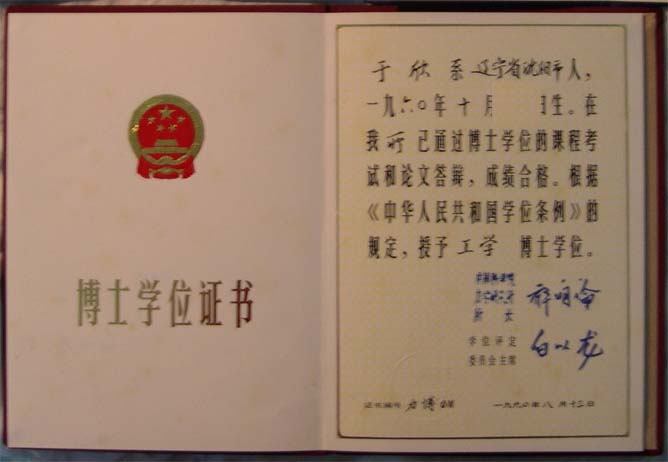 博士学位证书
于 欣 系 辽宁省沈阳市人，
一九六〇年 十 月 日生。在
我 所 已通过博士学位的课程考
试和论文答辩，成绩合格。根据
《中华人民共和国学位条例》的
规定，授予 工学 博士学位。
所 长
学位评定
委员会主席
白以龙
证书编号 力博
一九九〇年八月十三日